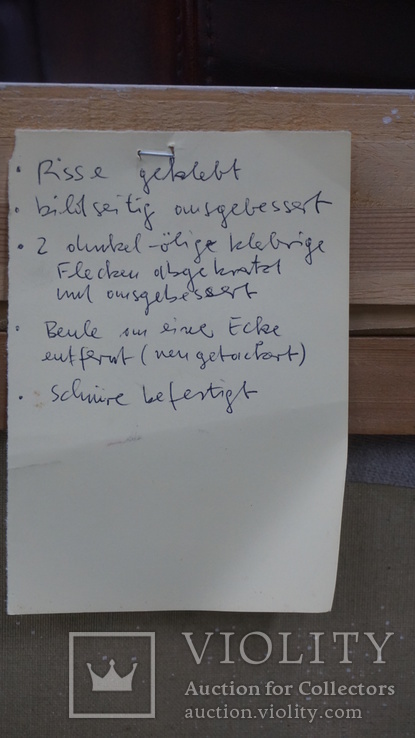 • Risse geklebt
• bildseitig ausgebessert
• 2 dunkel-ölige klebrige
Flecken abgekratzt
und ausgebessert
• Beule an einer Ecke
entfernt (neu getackert)
• Schnüre befestigt
VIOLITY
Auction for Collectors
auction.violity.com